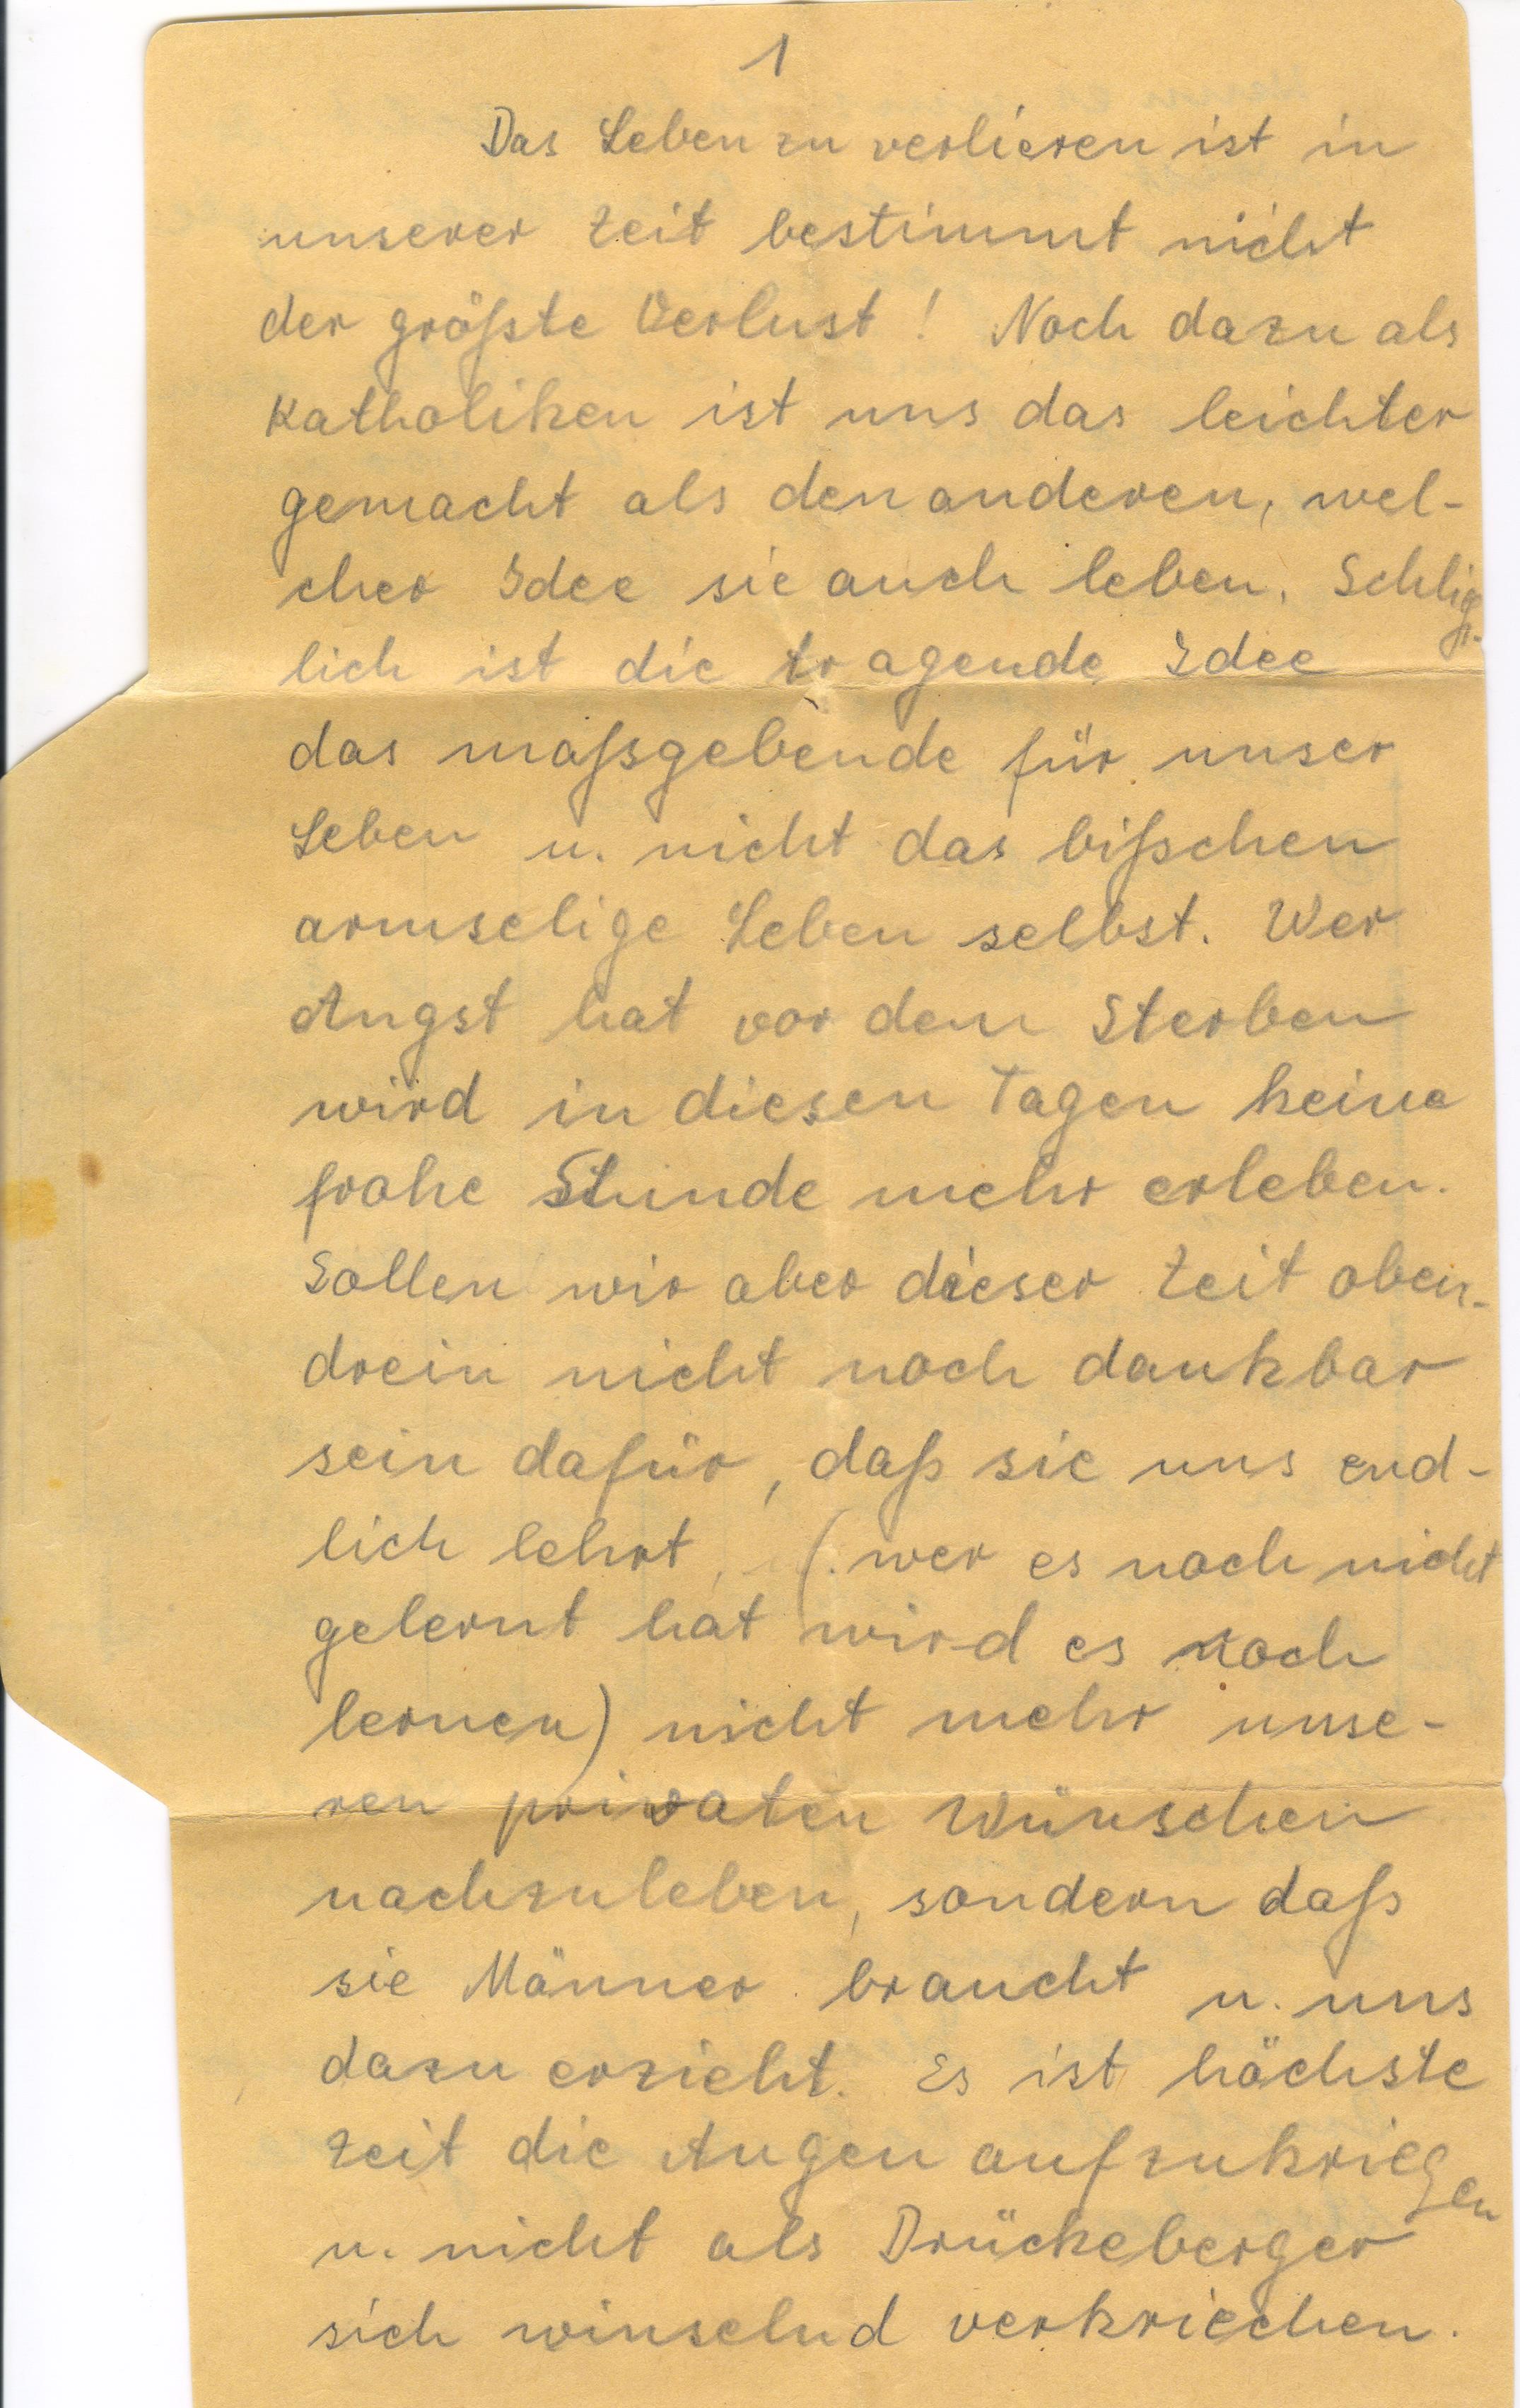 1
Das Leben zu verlieren ist in
unserer Zeit bestimmt nicht
der größte Verlust! Noch dazu als
Katholiken ist uns das leichter
gemacht als den anderen, wel-
cher Idee sie auch leben. Schließ-
lich ist die tragende Idee
das maßgebende für unser
Leben u. nicht das bißchen
armselige Leben selbst. Wer
Angst hat vor dem Sterben
wird in diesen Tagen keine
frohe Stunde mehr erleben.
Sollen wir aber dieser Zeit oben-
drein nicht noch dankbar
sein dafür, daß sie uns end-
lich lehrt, (wer es noch nicht
gelernt hat wird es noch
lernen) nicht mehr unse-
ren privaten Wünschen
nachzuleben, sondern daß
sie Männer braucht u. uns
dazu erzieht. Es ist höchste
Zeit die Augen aufzukriegen
u. nicht als Drückeberger
sich winselnd verkriechen.